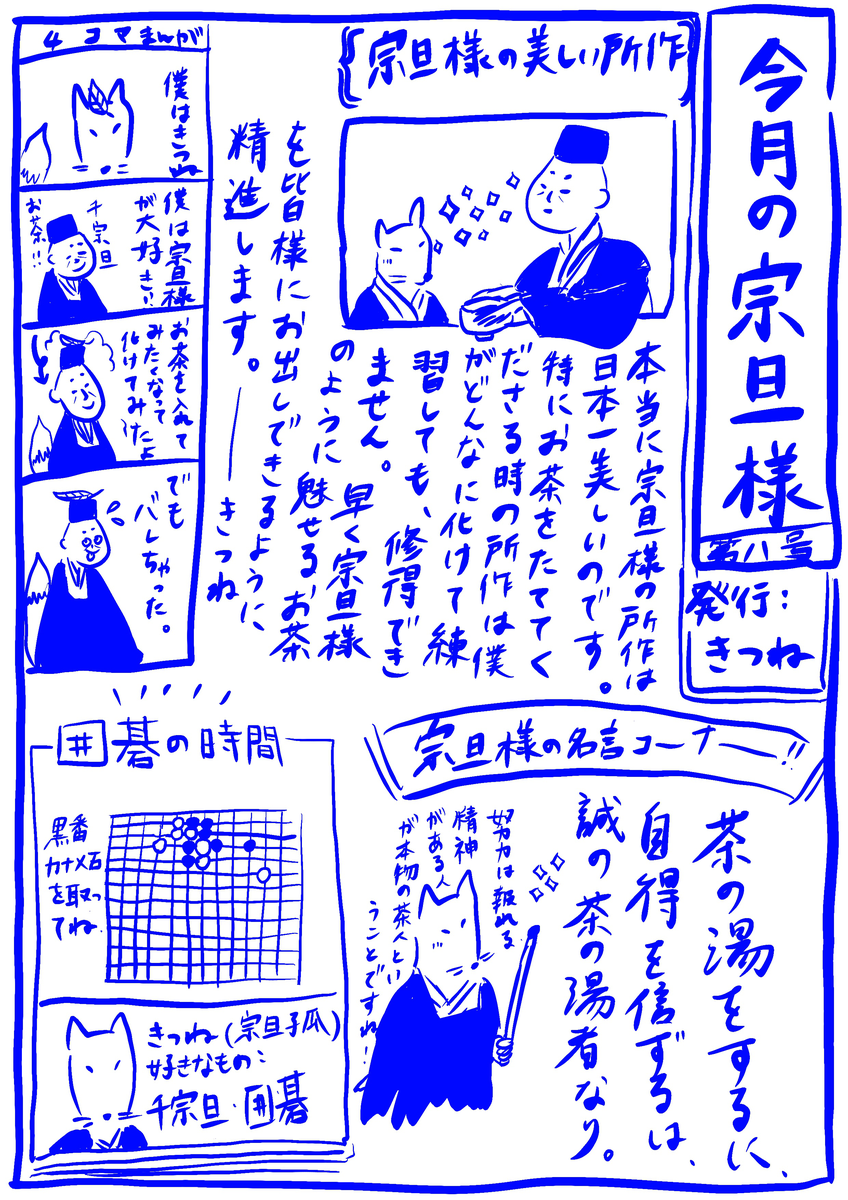 今月の宗旦様
第八号
発行：
きつね
宗旦様の美しい所作
本当に宗旦様の所作は
日本一美しいのです。
特にお茶をたててく
ださる時の所作は僕
がどんなに化けて練
習しても、修得でき
ません。早く宗旦様
のように魅せるお茶
を皆様にお出しできるように、
精進します。——きつね
4コマまんが
僕はきつね
僕は宗旦様
が大好き!!
千宗旦
お茶!!
お茶を入れて
みたくなって
化けてみたよ
でも
バレちゃった。
宗旦様の名言コーナー!!
茶の湯をするに、
自得を信ずるは、
誠の茶の湯者なり。
努力は報れる
精神
がある人
が本物の茶人とい
うことですね!
囲碁の時間
黒番
カナメ石
を取っ
てね
きつね(宗旦子瓜)
好きなもの:
千宗旦・囲碁